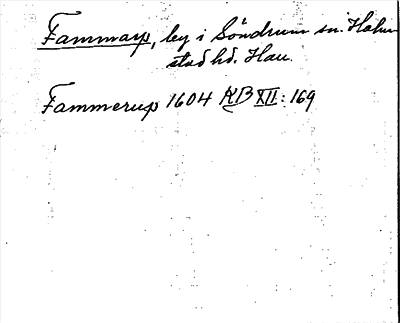 Fammarp, by i Söndrum sn. Halm
stad hd. Hall.
Fammerup 1604 KB XII: 169